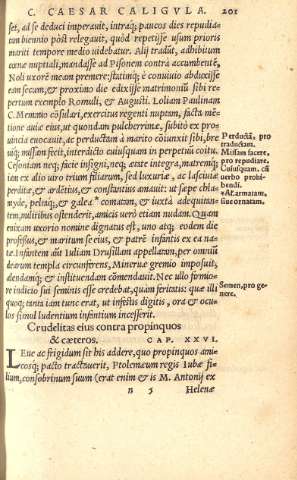 C. CAESAR CALIGVLA. 201
set, ad se deduci imperauit, intraq; paucos dies repudia-
tam biennio pòst relegauit, quòd repetisse usum prioris
mariti tempore medio uidebatur. Alij tradūt, adhibitum
cœnæ nuptiali, mandasse ad Pisonem contra accumbentē,
Noli uxorē meam premere: statimq; è conuiuio abduxisse
eam secum, & proximo die edixisse matrimoniū sibi re-
pertum exemplo Romuli, & Augusti. Lolliam Paulinam
C. Memmio cōsulari, exercitus regenti nuptam, factā mē-
tione auiæ eius, ut quondam pulcherrimæ, subitò ex pro-
uincia euocauit, ac perductam à marito coiunxit sibi, bre
uiq; missam fecit, interdicto cuiusquam in perpetuū coitu.
Cesoniam neq; facie insigni, neq; ætate integra, matremq;
iam ex alio uiro trium filiarum, sed luxuriæ, ac lasciuiæ
perditæ, & ardētius, & constantius amauit: ut sæpe chla
myde, peltaq;, & galea * comatam, & iuxtà adequitan-
tem, militibus ostenderit, amicis uerò etiam nudam. Quam
enixam uxorio nomine dignatus est, uno atq; eodem die
professus, & maritum se eius, & patrē infantis ex ea na-
tæ. Infantem aūt Iuliam Drusillam appellatam, per omniū
dearum templa circunferens, Mineruæ gremio imposuit,
alendamq; & instituendam cōmendauit. Nec ullo firmio-
re indicio sui seminis esse credebat, quàm feritatis: quæ illi
quoq; tanta iam tunc erat, ut infestis digitis, ora & ocu-
los simul ludentium infantium incesserit.
Perductā, pro
traductam.
Missam facere,
pro repudiare.
Cuiusquam, cū
uerbo prohi-
bendi.
*Al. armatam,
siue ornatam.
Semen, pro ge-
nere.
Crudelitas eius contra propinquos
& cæteros. CAP. XXVI.
LEue ac frigidum sit his addere, quo propinquos ami-
cosq; pacto tractauerit, Ptolemæum regis Iubæ fi-
lium, consobrinum suum (erat enim & is M. Antonij ex
n 5 Helenæ